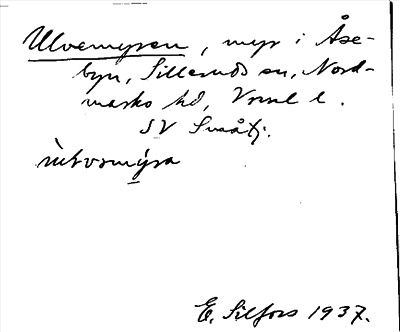 Ulvemyren, myr i Åse-
byn, Sillerud sn, Nord-
marks hd, Vrml l.
SV Småtj.
E. Silfors 1937.